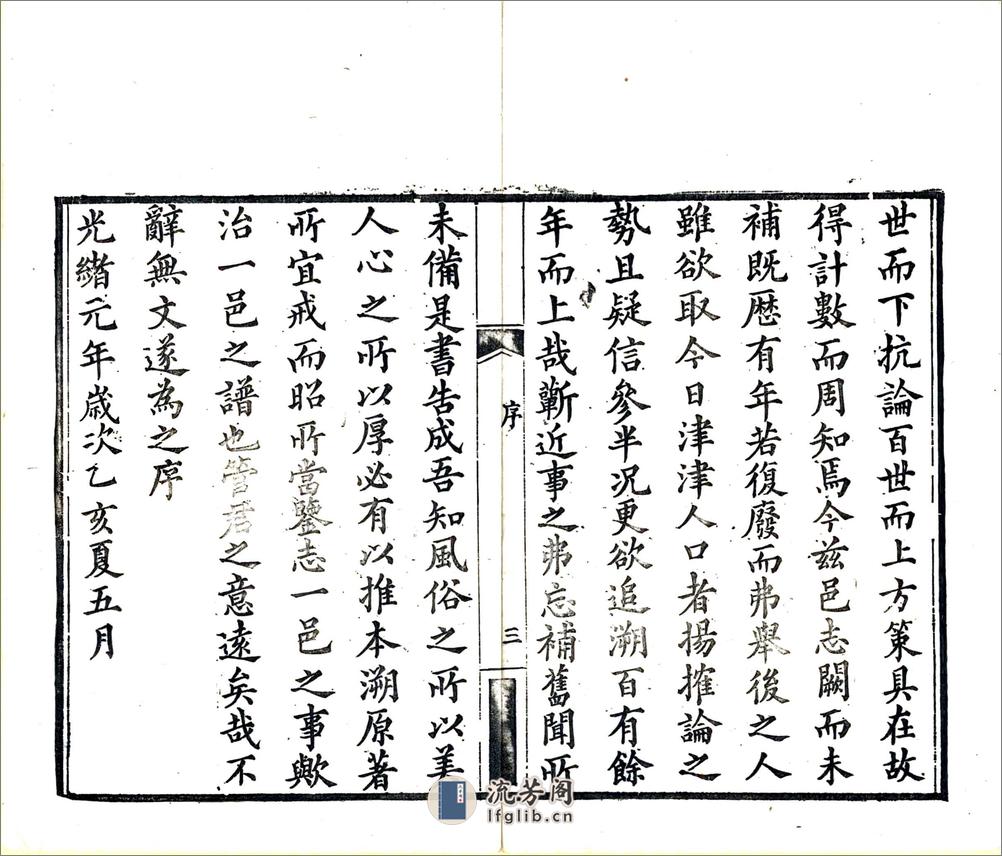 世而下抗論百世而上方策具在故
得計數而周知焉今茲邑志闕而未
補既歷有年若復廢而弗舉後之人
雖欲取今日津津人口者揚搉論之
勢且疑信參半況更欲追溯百有餘
年而上哉蘄近事之弗忘補舊聞所
序
三
未備是書告成吾知風俗之所以美
人心之所以厚必有以推本溯原著
所宜戒而昭所當鑒志一邑之事歟
治一邑之譜也管君之意遠矣哉不
辭無文遂為之序
光緒元年歲次乙亥夏五月
流芳阁
lfglib.cn